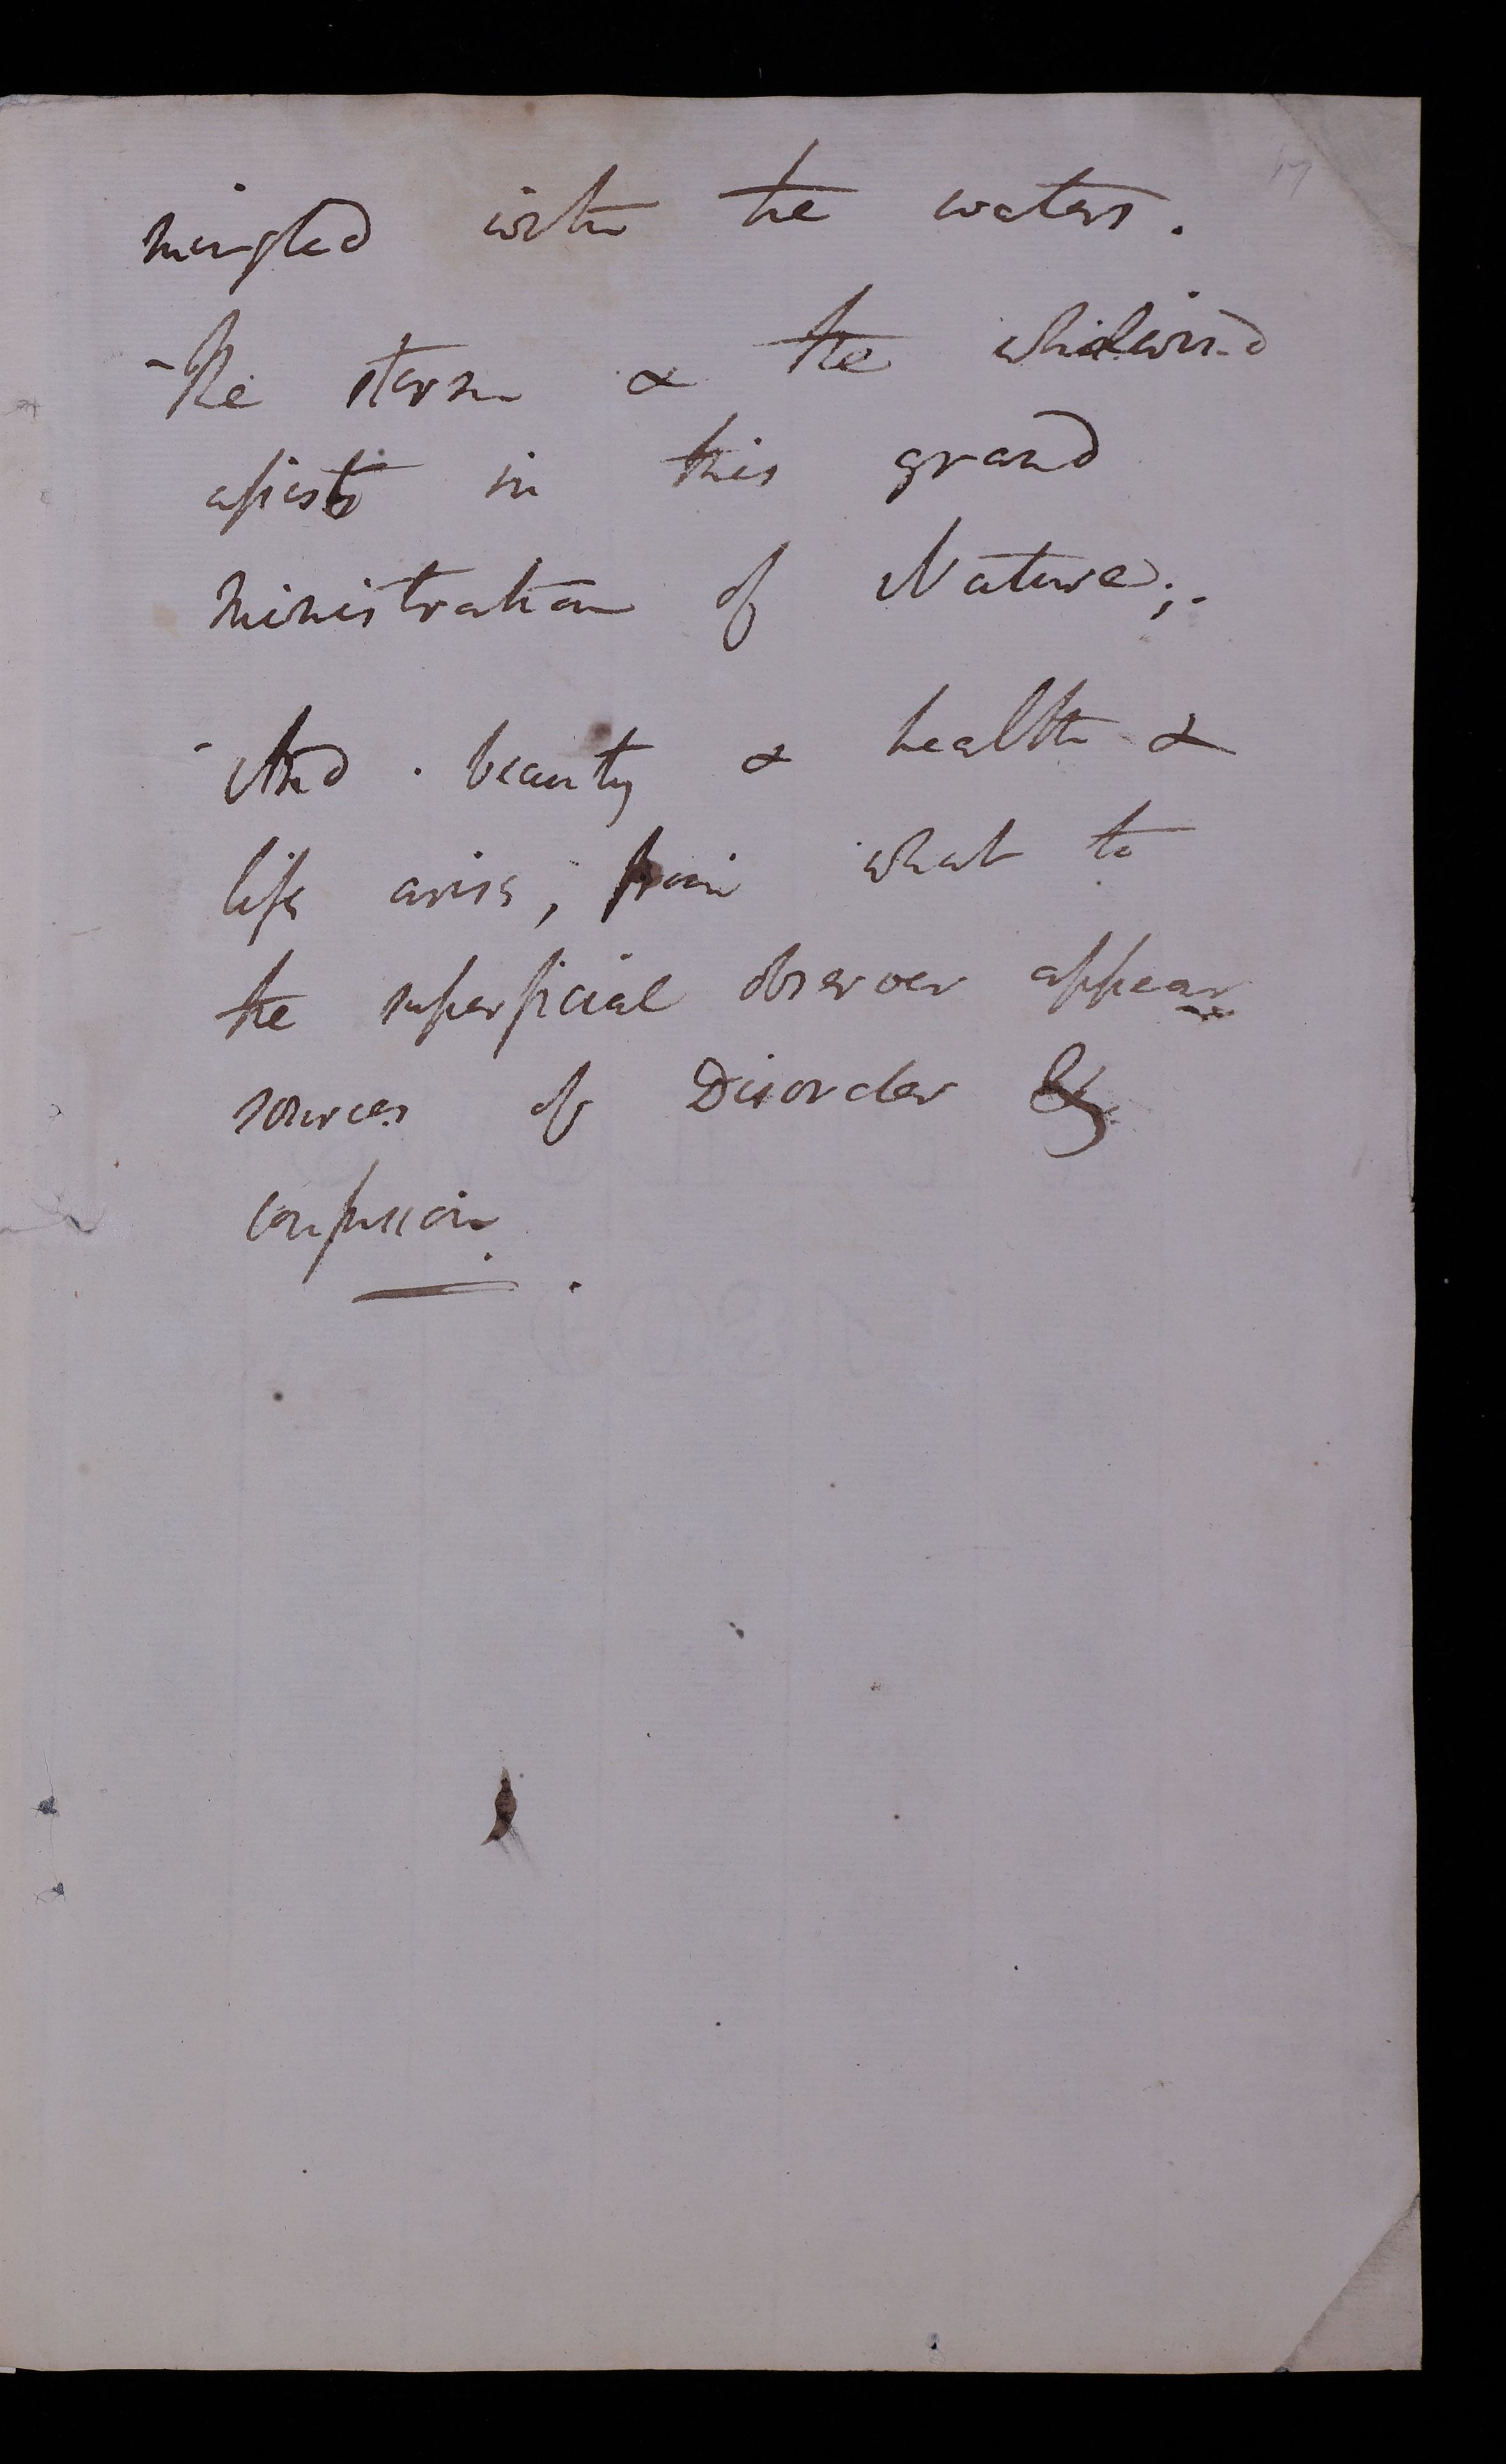 mingled with the waters.
- The storm & the whirlwind
assists in this grand
ministration of Nature; -
- And beauty & health &
life arise, from what to
the superficial observer appear
sources of Disorder &
confusion.